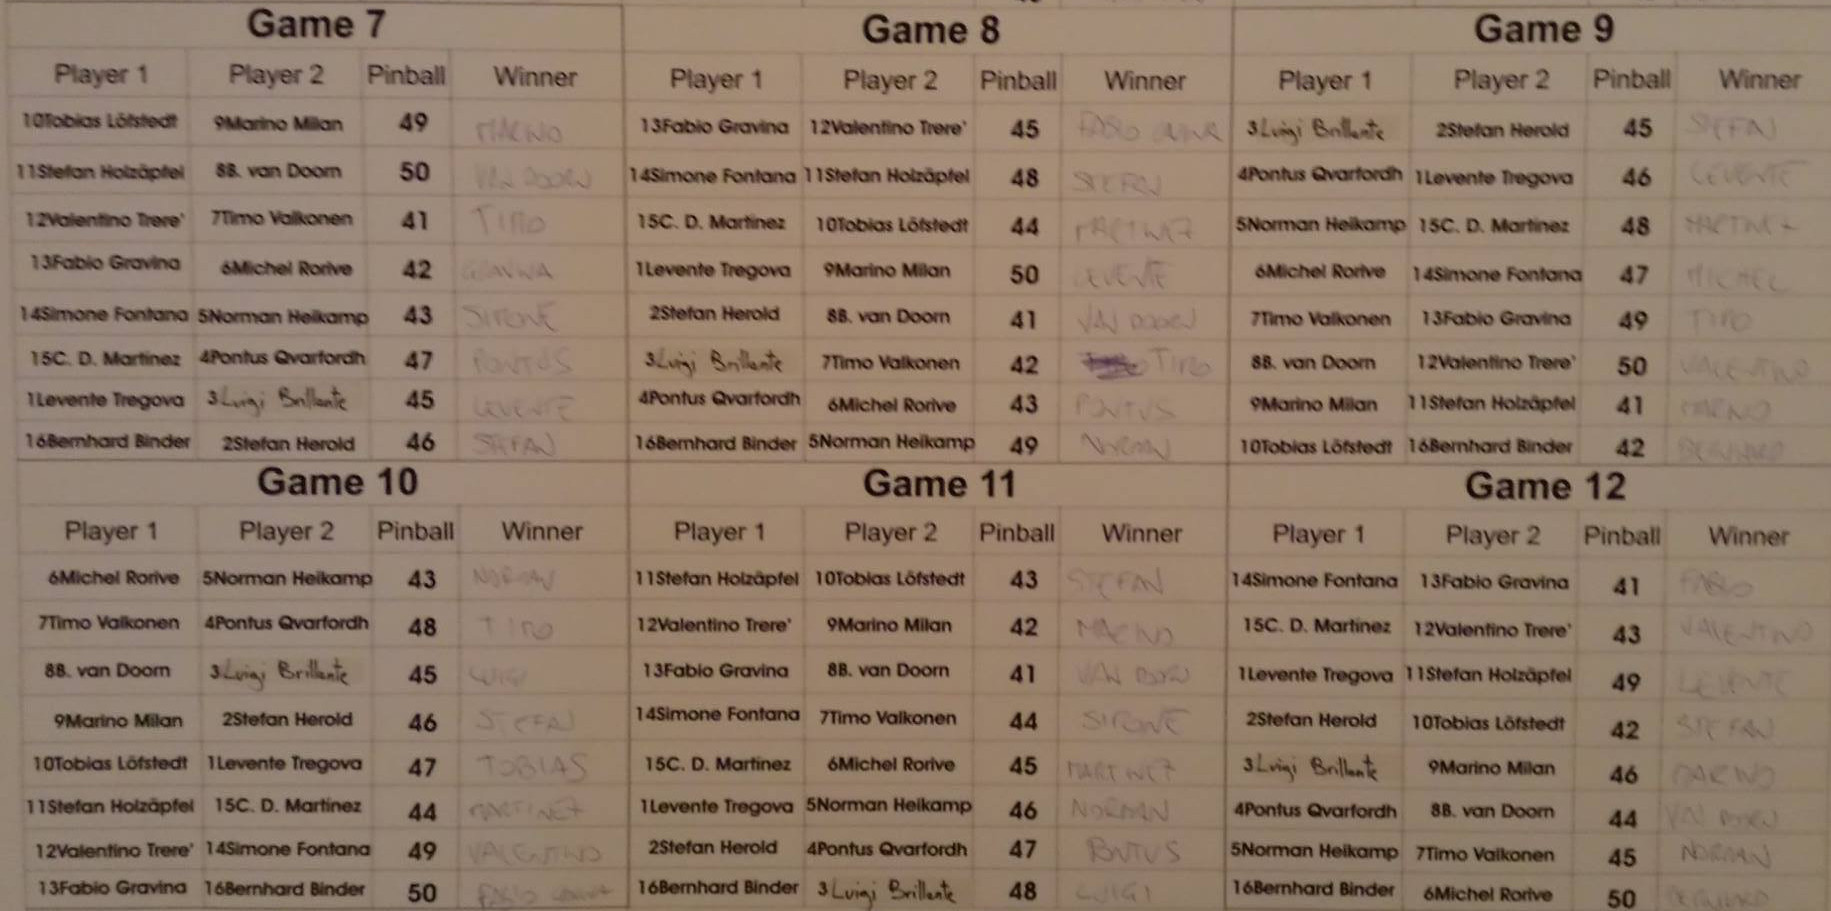 Game 7
Player 1 Player 2 Pinball Winner
10Tobias Löfstedt 9Marino Milan 49 MARINO
11Stefan Holzäpfel 8B. van Doorn 50 VAN DOORN
12Valentino Trere' 7Timo Valkonen 41 TIMO
13Fabio Gravina 6Michel Rorive 42 GRAVINA
14Simone Fontana 5Norman Heikamp 43 SIMONE
15C. D. Martinez 4Pontus Qvarfordh 47 PONTUS
1Levente Tregova 3Luigi Brillante 45 LEVENTE
16Bernhard Binder 2Stefan Herold 46 STEFAN
Game 8
Player 1 Player 2 Pinball Winner
13Fabio Gravina 12Valentino Trere' 45 FABIO
14Simone Fontana 11Stefan Holzäpfel 48 STEFAN
15C. D. Martinez 10Tobias Löfstedt 44 MARTINEZ
1Levente Tregova 9Marino Milan 50 LEVENTE
2Stefan Herold 8B. van Doorn 41 VAN DOORN
3Luigi Brillante 7Timo Valkonen 42 TIMO
4Pontus Qvarfordh 6Michel Rorive 43 PONTUS
16Bernhard Binder 5Norman Heikamp 49 NORMAN
Game 9
Player 1 Player 2 Pinball Winner
3Luigi Brillante 2Stefan Herold 45 STEFAN
4Pontus Qvarfordh 1Levente Tregova 46 LEVENTE
5Norman Heikamp 15C. D. Martinez 48 MARTINEZ
6Michel Rorive 14Simone Fontana 47 MICHEL
7Timo Valkonen 13Fabio Gravina 49 TIMO
8B. van Doorn 12Valentino Trere' 50 VALENTINO
9Marino Milan 11Stefan Holzäpfel 41 MARINO
10Tobias Löfstedt 16Bernhard Binder 42 BERNHARD
Game 10
Player 1 Player 2 Pinball Winner
6Michel Rorive 5Norman Heikamp 43 NORMAN
7Timo Valkonen 4Pontus Qvarfordh 48 TIMO
8B. van Doorn 3Luigi Brillante 45 LUIGI
9Marino Milan 2Stefan Herold 46 STEFAN
10Tobias Löfstedt 1Levente Tregova 47 TOBIAS
11Stefan Holzäpfel 15C. D. Martinez 44 MARTINEZ
12Valentino Trere' 14Simone Fontana 49 VALENTINO
13Fabio Gravina 16Bernhard Binder 50 FABIO
Game 11
Player 1 Player 2 Pinball Winner
11Stefan Holzäpfel 10Tobias Löfstedt 43 STEFAN
12Valentino Trere' 9Marino Milan 42 MARINO
13Fabio Gravina 8B. van Doorn 41 VAN DOORN
14Simone Fontana 7Timo Valkonen 44 SIMONE
15C. D. Martinez 6Michel Rorive 45 MARTINEZ
1Levente Tregova 5Norman Heikamp 46 NORMAN
2Stefan Herold 4Pontus Qvarfordh 47 PONTUS
16Bernhard Binder 3Luigi Brillante 48 LUIGI
Game 12
Player 1 Player 2 Pinball Winner
14Simone Fontana 13Fabio Gravina 41 FABIO
15C. D. Martinez 12Valentino Trere' 43 VALENTINO
1Levente Tregova 11Stefan Holzäpfel 49 LEVENTE
2Stefan Herold 10Tobias Löfstedt 42 STEFAN
3Luigi Brillante 9Marino Milan 46 MARINO
4Pontus Qvarfordh 8B. van Doorn 44 VAN DOORN
5Norman Heikamp 7Timo Valkonen 45 NORMAN
16Bernhard Binder 6Michel Rorive 50 BERNHARD